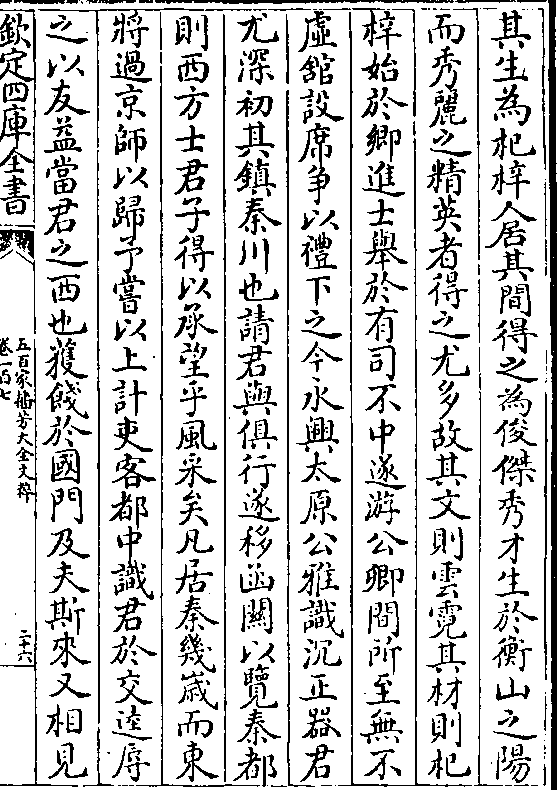 其生為杞梓人居其間得之為俊傑秀才生於衡山之陽
而秀麗之精英者得之尤多故其文則雲霓其材則杞
梓始於鄉進士舉於有司不中遂游公卿間所至無不
虛舘設席爭以禮下之今永興太原公雅識沉正器君
尤深初其鎮秦川也請君與俱行遂移函關以覽秦都
則西方士君子得以承望乎風采矣凡居秦幾歳而東
將過京師以歸予嘗以上計吏客都中識君於交逵辱
之以友益當君之西也獲餞於國門及夫斯來又相見
欽定四庫全書
五百家播芳大全文粹
卷一百七
二十六